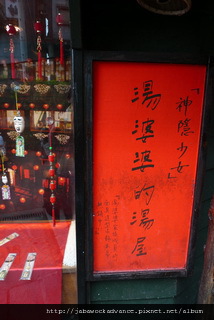 「神隱少女」
湯婆婆的湯屋
http://jabawockadvance.pixnet.net/album